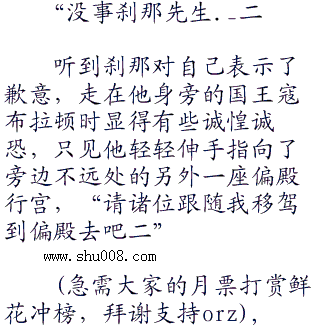 “没事刹那先生．．二
听到刹那对自己表示了
歉意，走在他身旁的国王寇
布拉顿时显得有些诚惶诚
恐，只见他轻轻伸手指向了
旁边不远处的另外一座偏殿
行宫，“请诸位跟随我移驾
到偏殿去吧二”
www.shu008.com
(急需大家的月票打赏鲜
花冲榜，拜谢支持orz)，